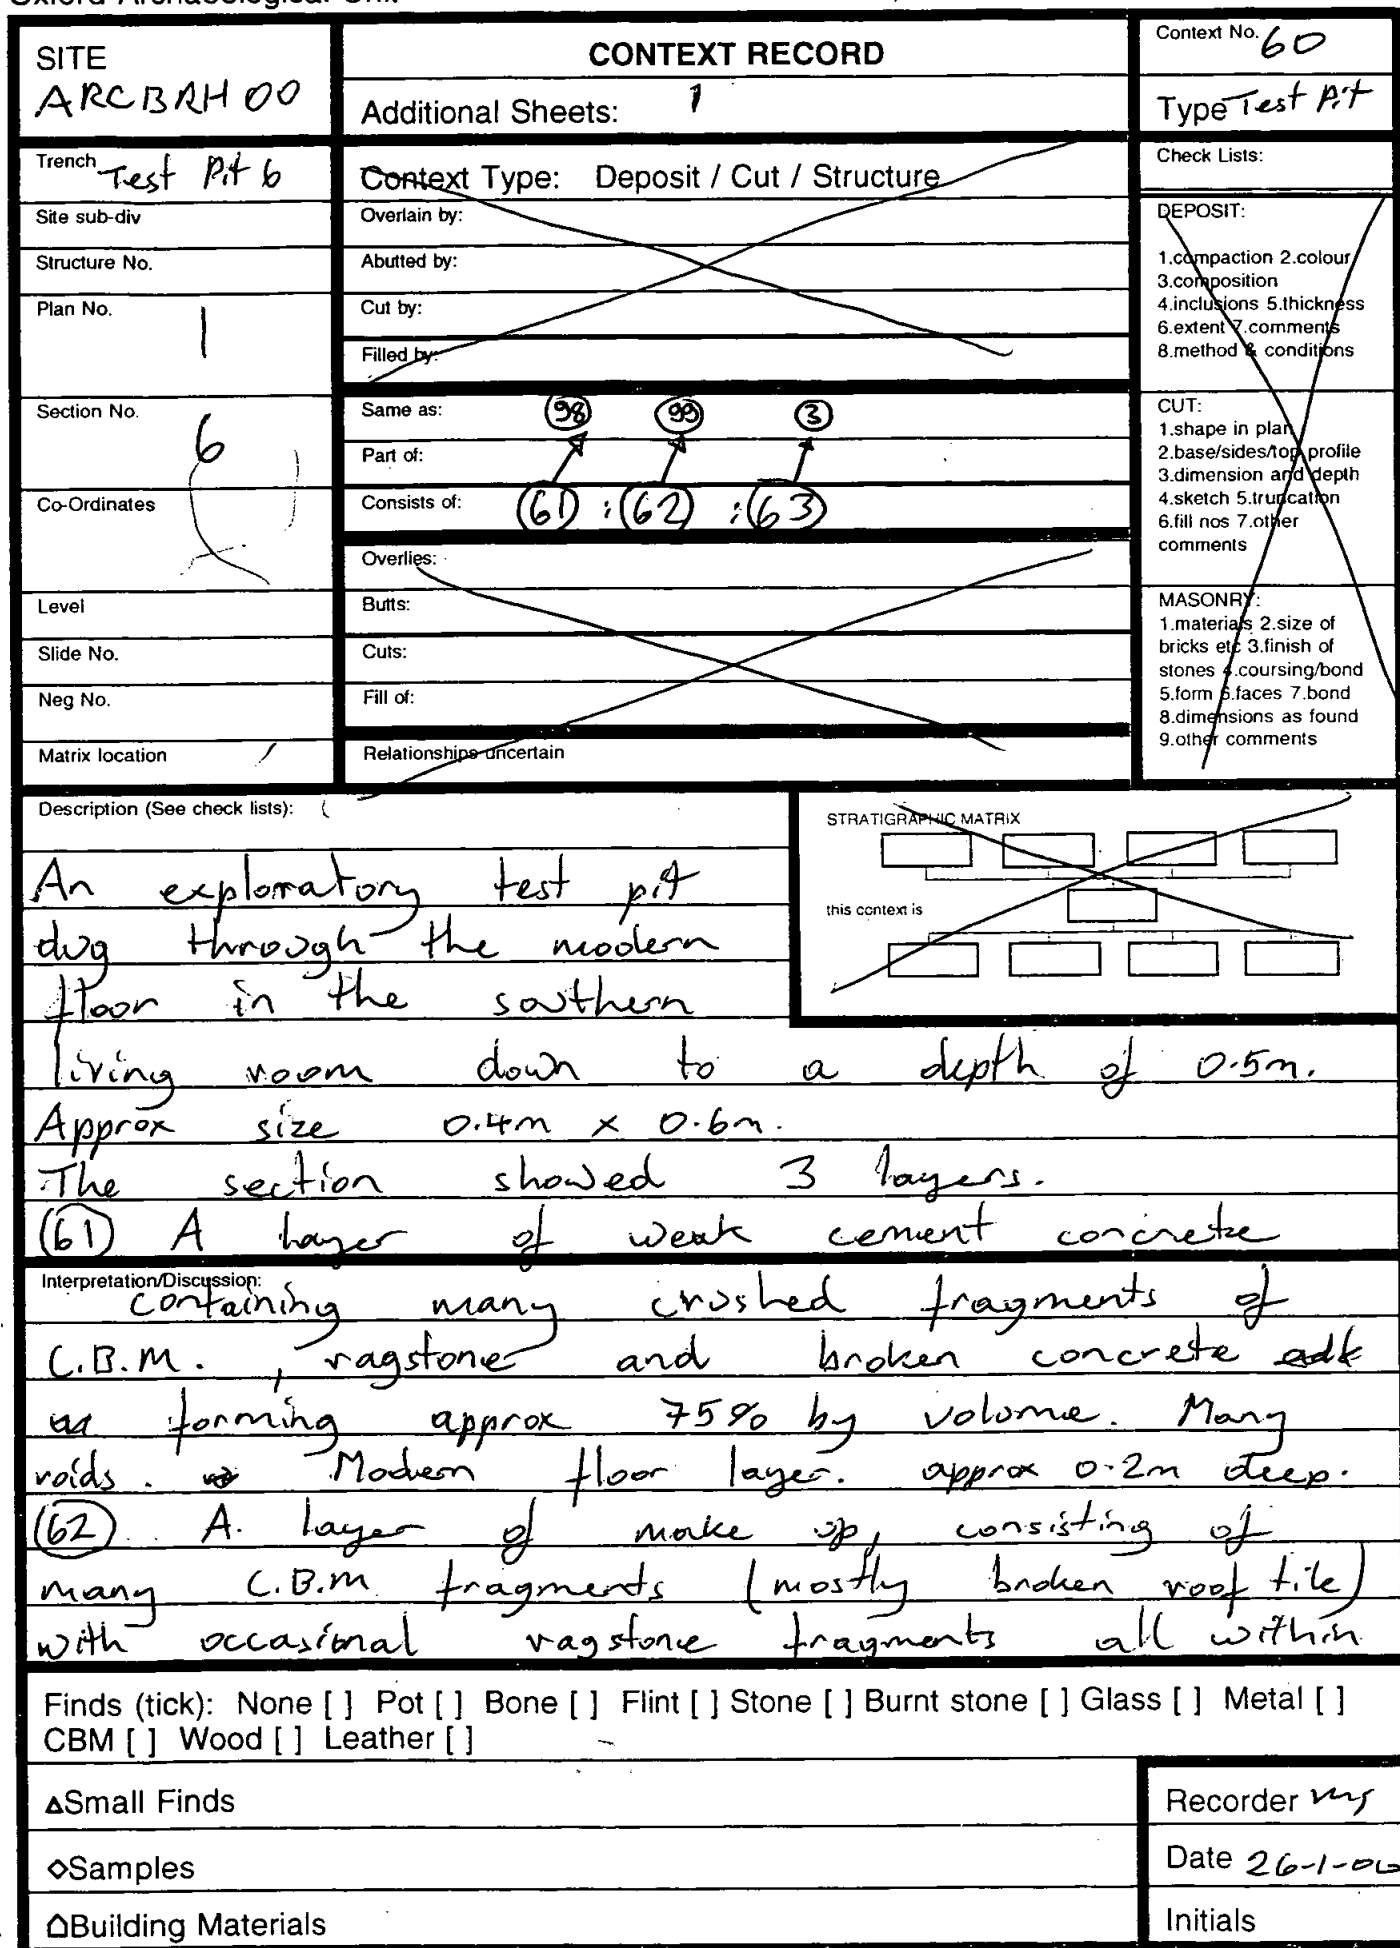 SITE
ARCBRH 00
CONTEXT RECORD
Additional Sheets: 1
Context No. 60
Type Test Pit
Trench Test Pit 6
Site sub-div
Structure No.
Plan No. 1
Section No. 6
Co-Ordinates
Level
Slide No.
Neg No.
Matrix location
Context Type: Deposit / Cut / Structure
Overlain by:
Abutted by:
Cut by:
Filled by:
Same as: 98 99 3
Part of:
Consists of: (61) : (62) : (63)
Overlies:
Butts:
Cuts:
Fill of:
Relationships uncertain
Check Lists:
DEPOSIT:
1.compaction 2.colour
3.composition
4.inclusions 5.thickness
6.extent 7.comments
8.method & conditions
CUT:
1.shape in plan
2.base/sides/top profile
3.dimension and depth
4.sketch 5.truncation
6.fill nos 7.other
comments
MASONRY:
1.materials 2.size of
bricks etc 3.finish of
stones 4.coursing/bond
5.form 6.faces 7.bond
8.dimensions as found
9.other comments
Description (See check lists):
STRATIGRAPHIC MATRIX
this context is
An exploratory test pit
dug through the modern
floor in the southern
living room down to a depth of 0.5m.
Approx size 0.4m x 0.6m.
The section showed 3 layers.
(61) A layer of weak cement concrete
Interpretation/Discussion:
containing many crushed fragments of
C.B.M., ragstone and broken concrete
forming approx 75% by volume. Many
voids. Modern floor layer. approx 0.2m deep.
(62) A. layer of make up, consisting of
many C.B.M. fragments (mostly broken roof tile)
with occasional ragstone fragments all within
Finds (tick): None [ ] Pot [ ] Bone [ ] Flint [ ] Stone [ ] Burnt stone [ ] Glass [ ] Metal [ ]
CBM [ ] Wood [ ] Leather [ ]
Small Finds
Samples
Building Materials
Recorder
Date 26-1-00
Initials